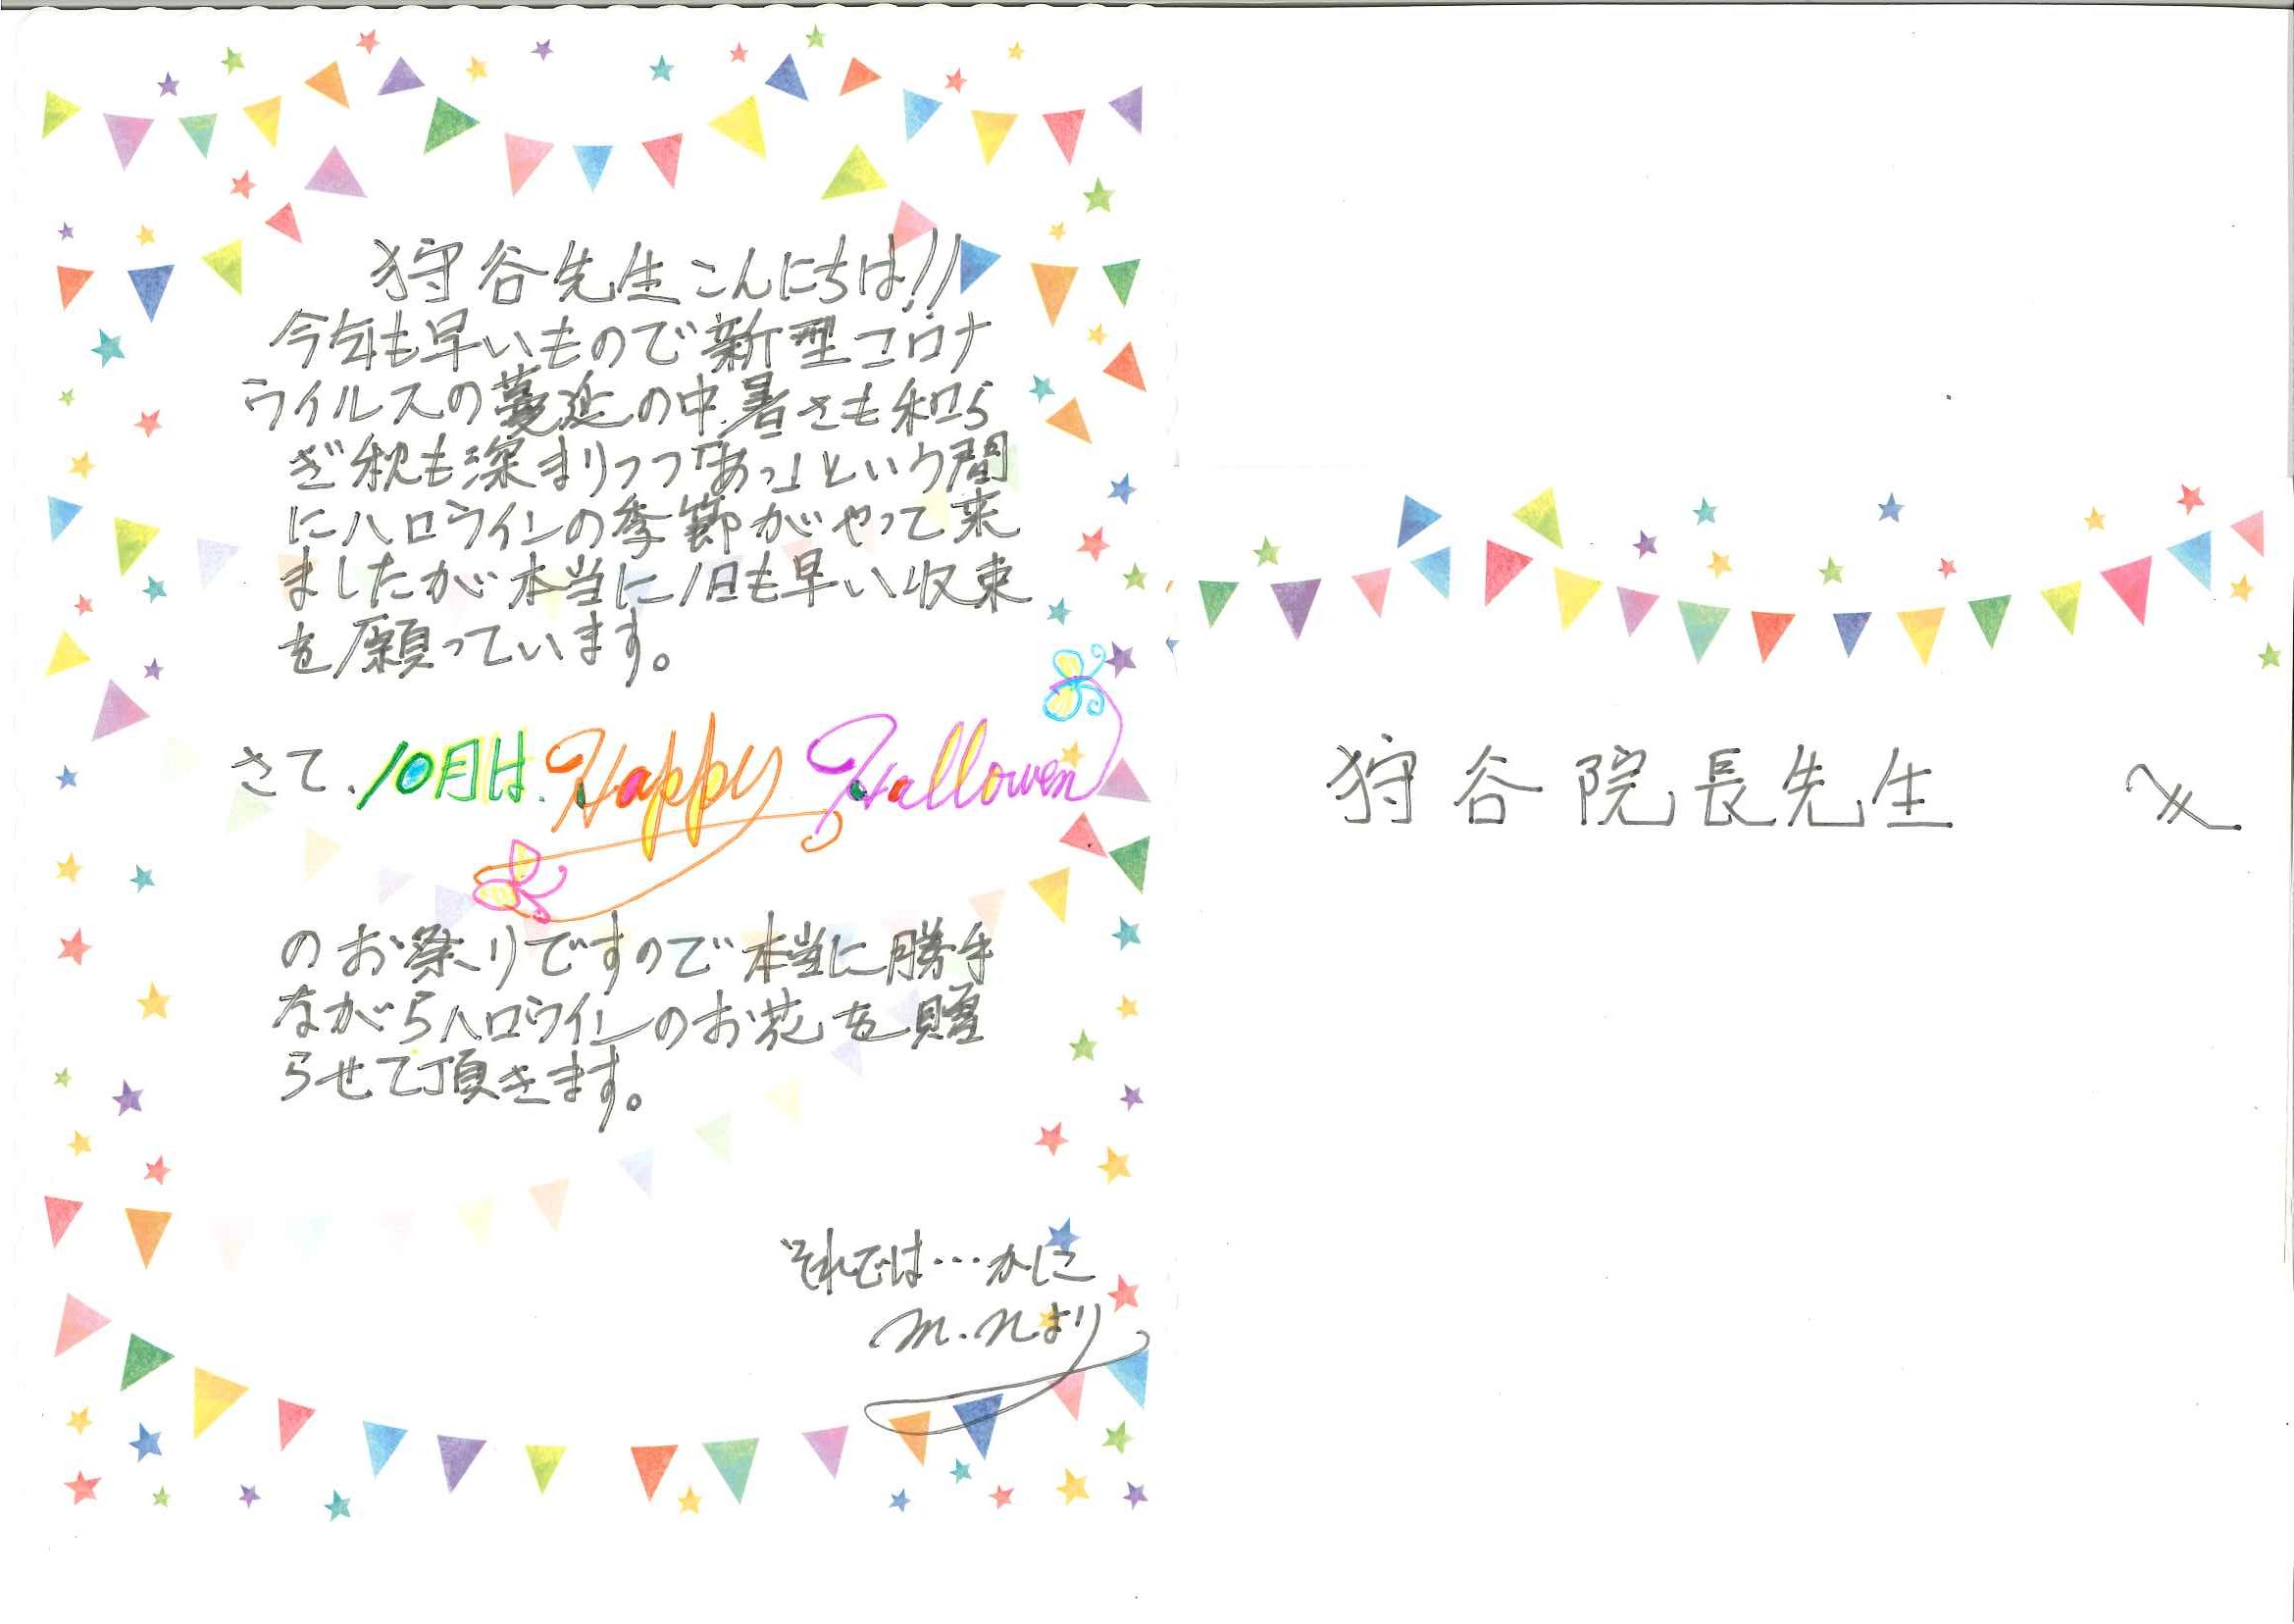 狩谷先生こんにちは!!
今年も早いもので新型コロナ
ウイルスの蔓延の中、暑さも和ら
ぎ秋も深まりつつ「あっ」という間
にハロウインの季節がやって来
ましたが本当に1日も早い収束
を願っています。
さて、10月は、Happy Hallowen
のお祭りですので本当に勝手
ながらハロウインのお花を贈
らせて頂きます。
それでは…
M.Nより
狩谷院長先生